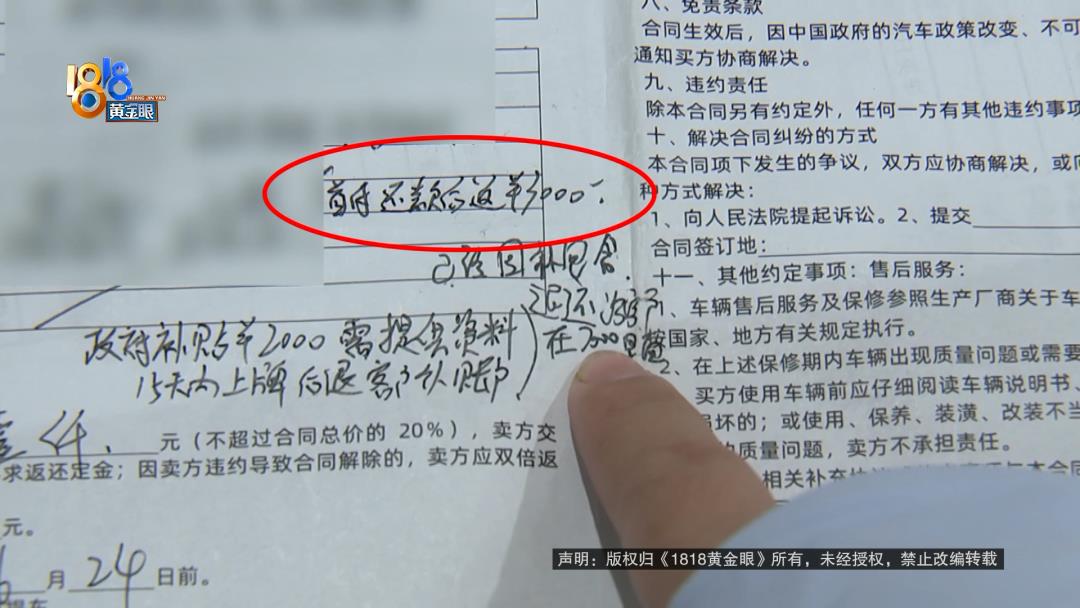 1818
HUANG JIN YAN
黄金眼
首付还款后返单7000
政府补贴单2000需提供资料
15天内上牌后退客户认账
在7000里面
元（不超过合同总价的 20%），卖方交
求返还定金；因卖方违约导致合同解除的，卖方应双倍返
元。
月24日前。
八、免责条款
合同生效后，因中国政府的汽车政策改变、不可
通知买方协商解决。
九、违约责任
除本合同另有约定外，任何一方有其他违约事项
十、解决合同纠纷的方式
本合同项下发生的争议，双方应协商解决，或向
种方式解决：
1、向人民法院提起诉讼。2、提交
合同签订地：
十一、其他约定事项：售后服务：
1、车辆售后服务及保修参照生产厂商关于车
按国家、地方有关规定执行。
2、在上述保修期内车辆出现质量问题或需要
买方使用车辆前应仔细阅读车辆说明书、
损坏的；或使用、保养、装潢、改装不当
的质量问题，卖方不承担责任。
相关补充
声明：版权归《1818黄金眼》所有，未经授权，禁止改编转载